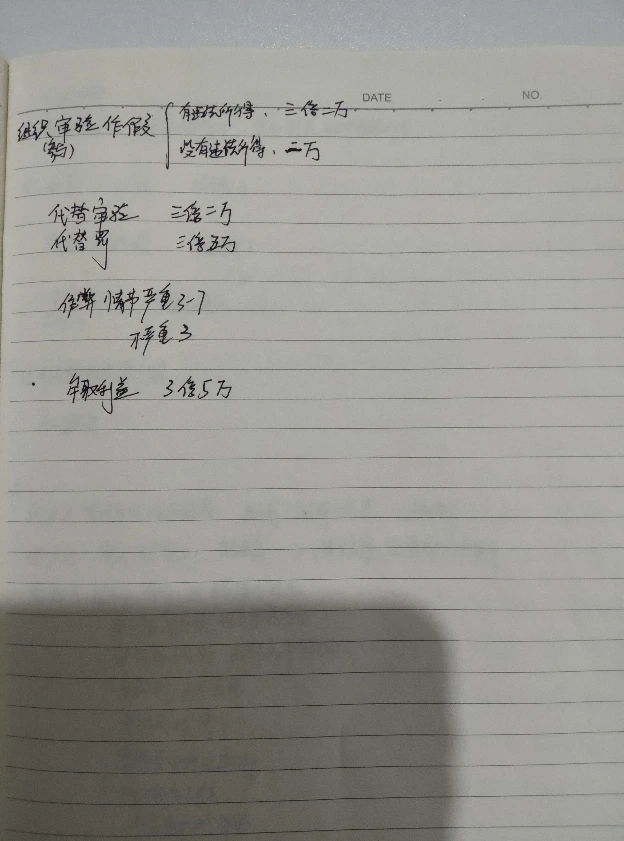 DATE NO.
有违法所得、三倍二万
组织审验作假
(参与)
没有违法所得、二万
代替审验 三倍二万
代替 三倍五万
作弊情节严重3-7
不严重3
牟取利益 3倍5万